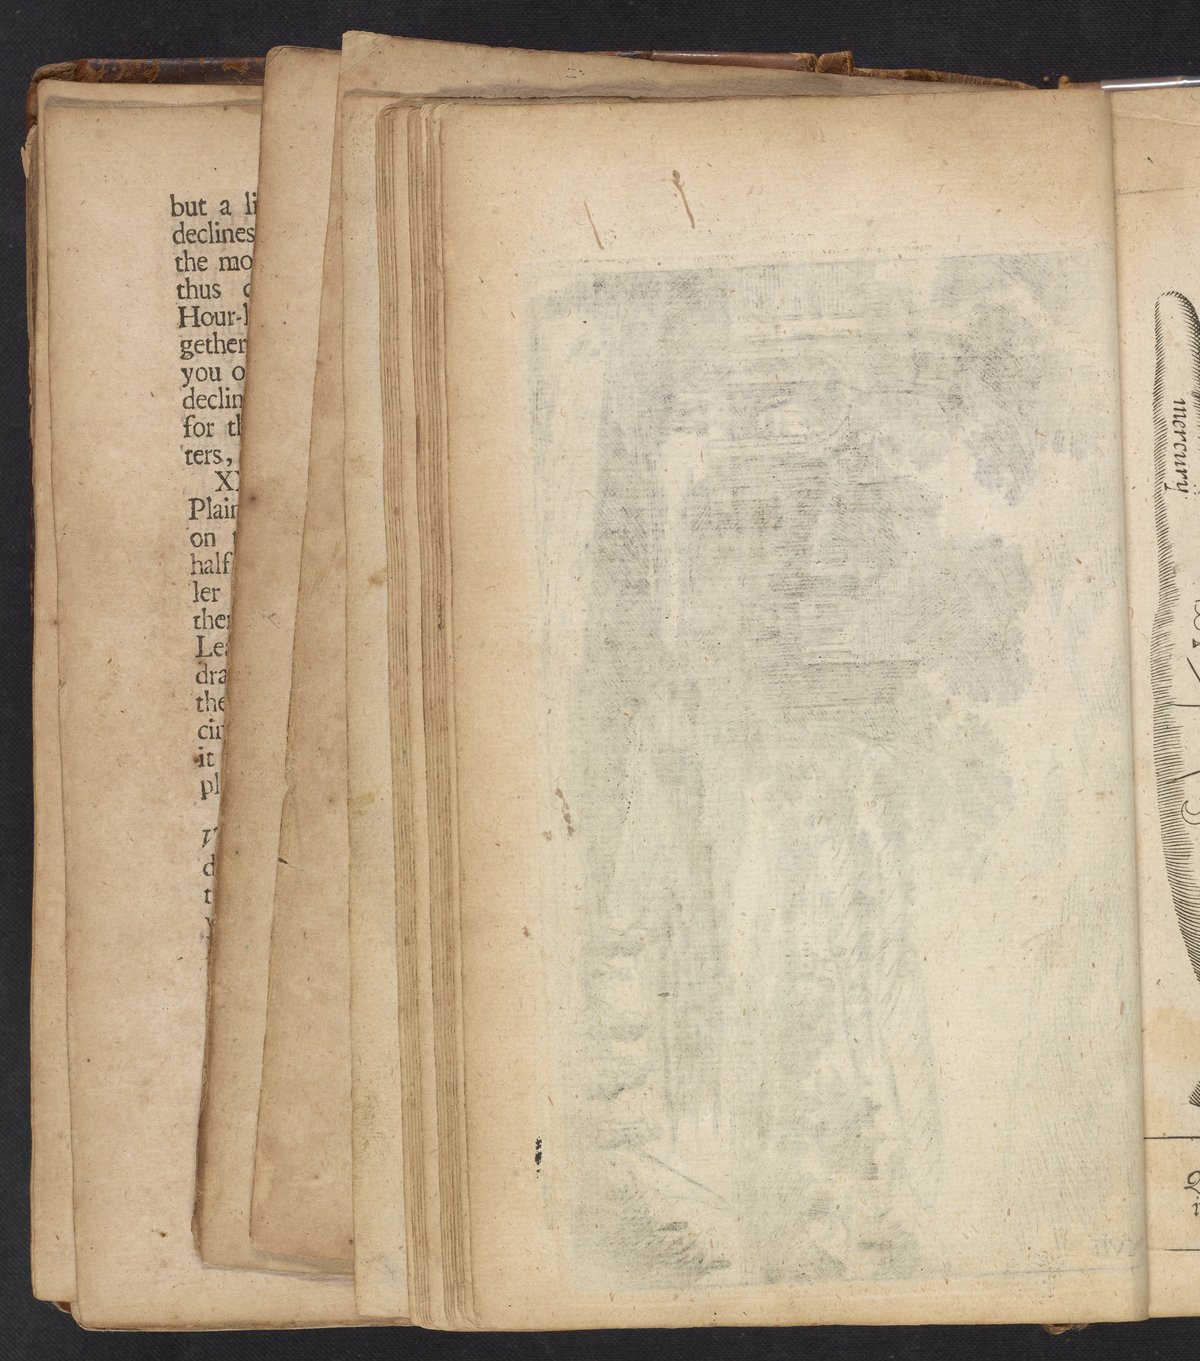 but a li
declines
the mo
thus
Hour-
gether
you o
declin
for th
ters,
X
Plain
on
half
ler
then
Lea
dra
the
cir
it
pl
d
t
mercury